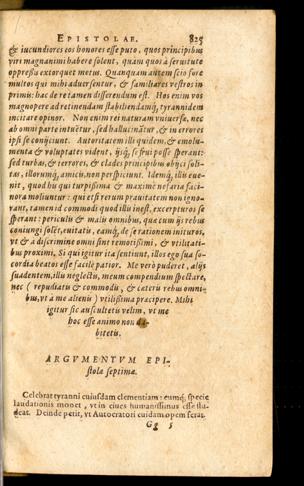 EPISTOLAE. 825
& iucundiores eos honores esse puto, quos principibus
viri magnanimi habere solent, quàm quos à seruitute
oppressu extorquet metus. Quanquam autem scio fore
multos qui mihi aduersentur, & familiares vestros in
primis: hac de re tamen disserendum est. Hos enim vos
magnopere ad retinendam stabiliendamq́; tyrannidem
incitare opinor. Non enim rei naturam vniuersæ, nec
ab omni parte intuẽtur, sed hallucinãtur, & in errores
ipsi se conijciunt. Autoritatem illi quidem, & emolu-
menta & voluptates vident, ijsq́; se frui posse sperant:
sed turbas, & terrores, & clades principibus obijci soli-
tas, illorumq́; amicis non perspiciunt. Idemq́; illis eue-
nit, quod his qui turpissima & maximè nefaria faci-
nora moliuntur: qui etsi rerum prauitatem non igno-
rant, tamen id commodi quod illis inest, excerpturos se
sperant: periculis & malis omnibus, quæ cum ijs rebus
coniungi solẽt, euitatis, eamq́; de se rationem inituros,
vt & à discrimine omni sint remotissimi, & vtilitati-
bus proximi. Si qui igitur ita sentiunt, illos ego sua so-
cordia beatos esse facilè patior. Me verò puderet, alijs
suadentem, illis neglectis, meum compendium spectare,
nec (repudiatis & commodis, & cæteris rebus omni-
bus, vt à me alienis) vtilissima præcipere. Mihi
igitur sic auscultetis velim, vt me
hoc esse animo non du-
bitetis.
ARGVMENTVM EPI-
stolæ septimæ.
Celebrat tyranni cuiusdam clementiam: eumq́; specie
laudationis monet, vt in ciues humanissimus esse stu-
deat. Deinde petit, vt Autocratori cuidam opem ferat.
Gg 5